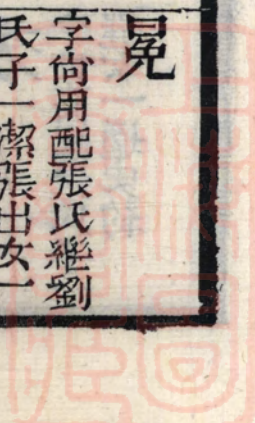 冕
字尙用配張氏繼劉
氏子一潔張出女一